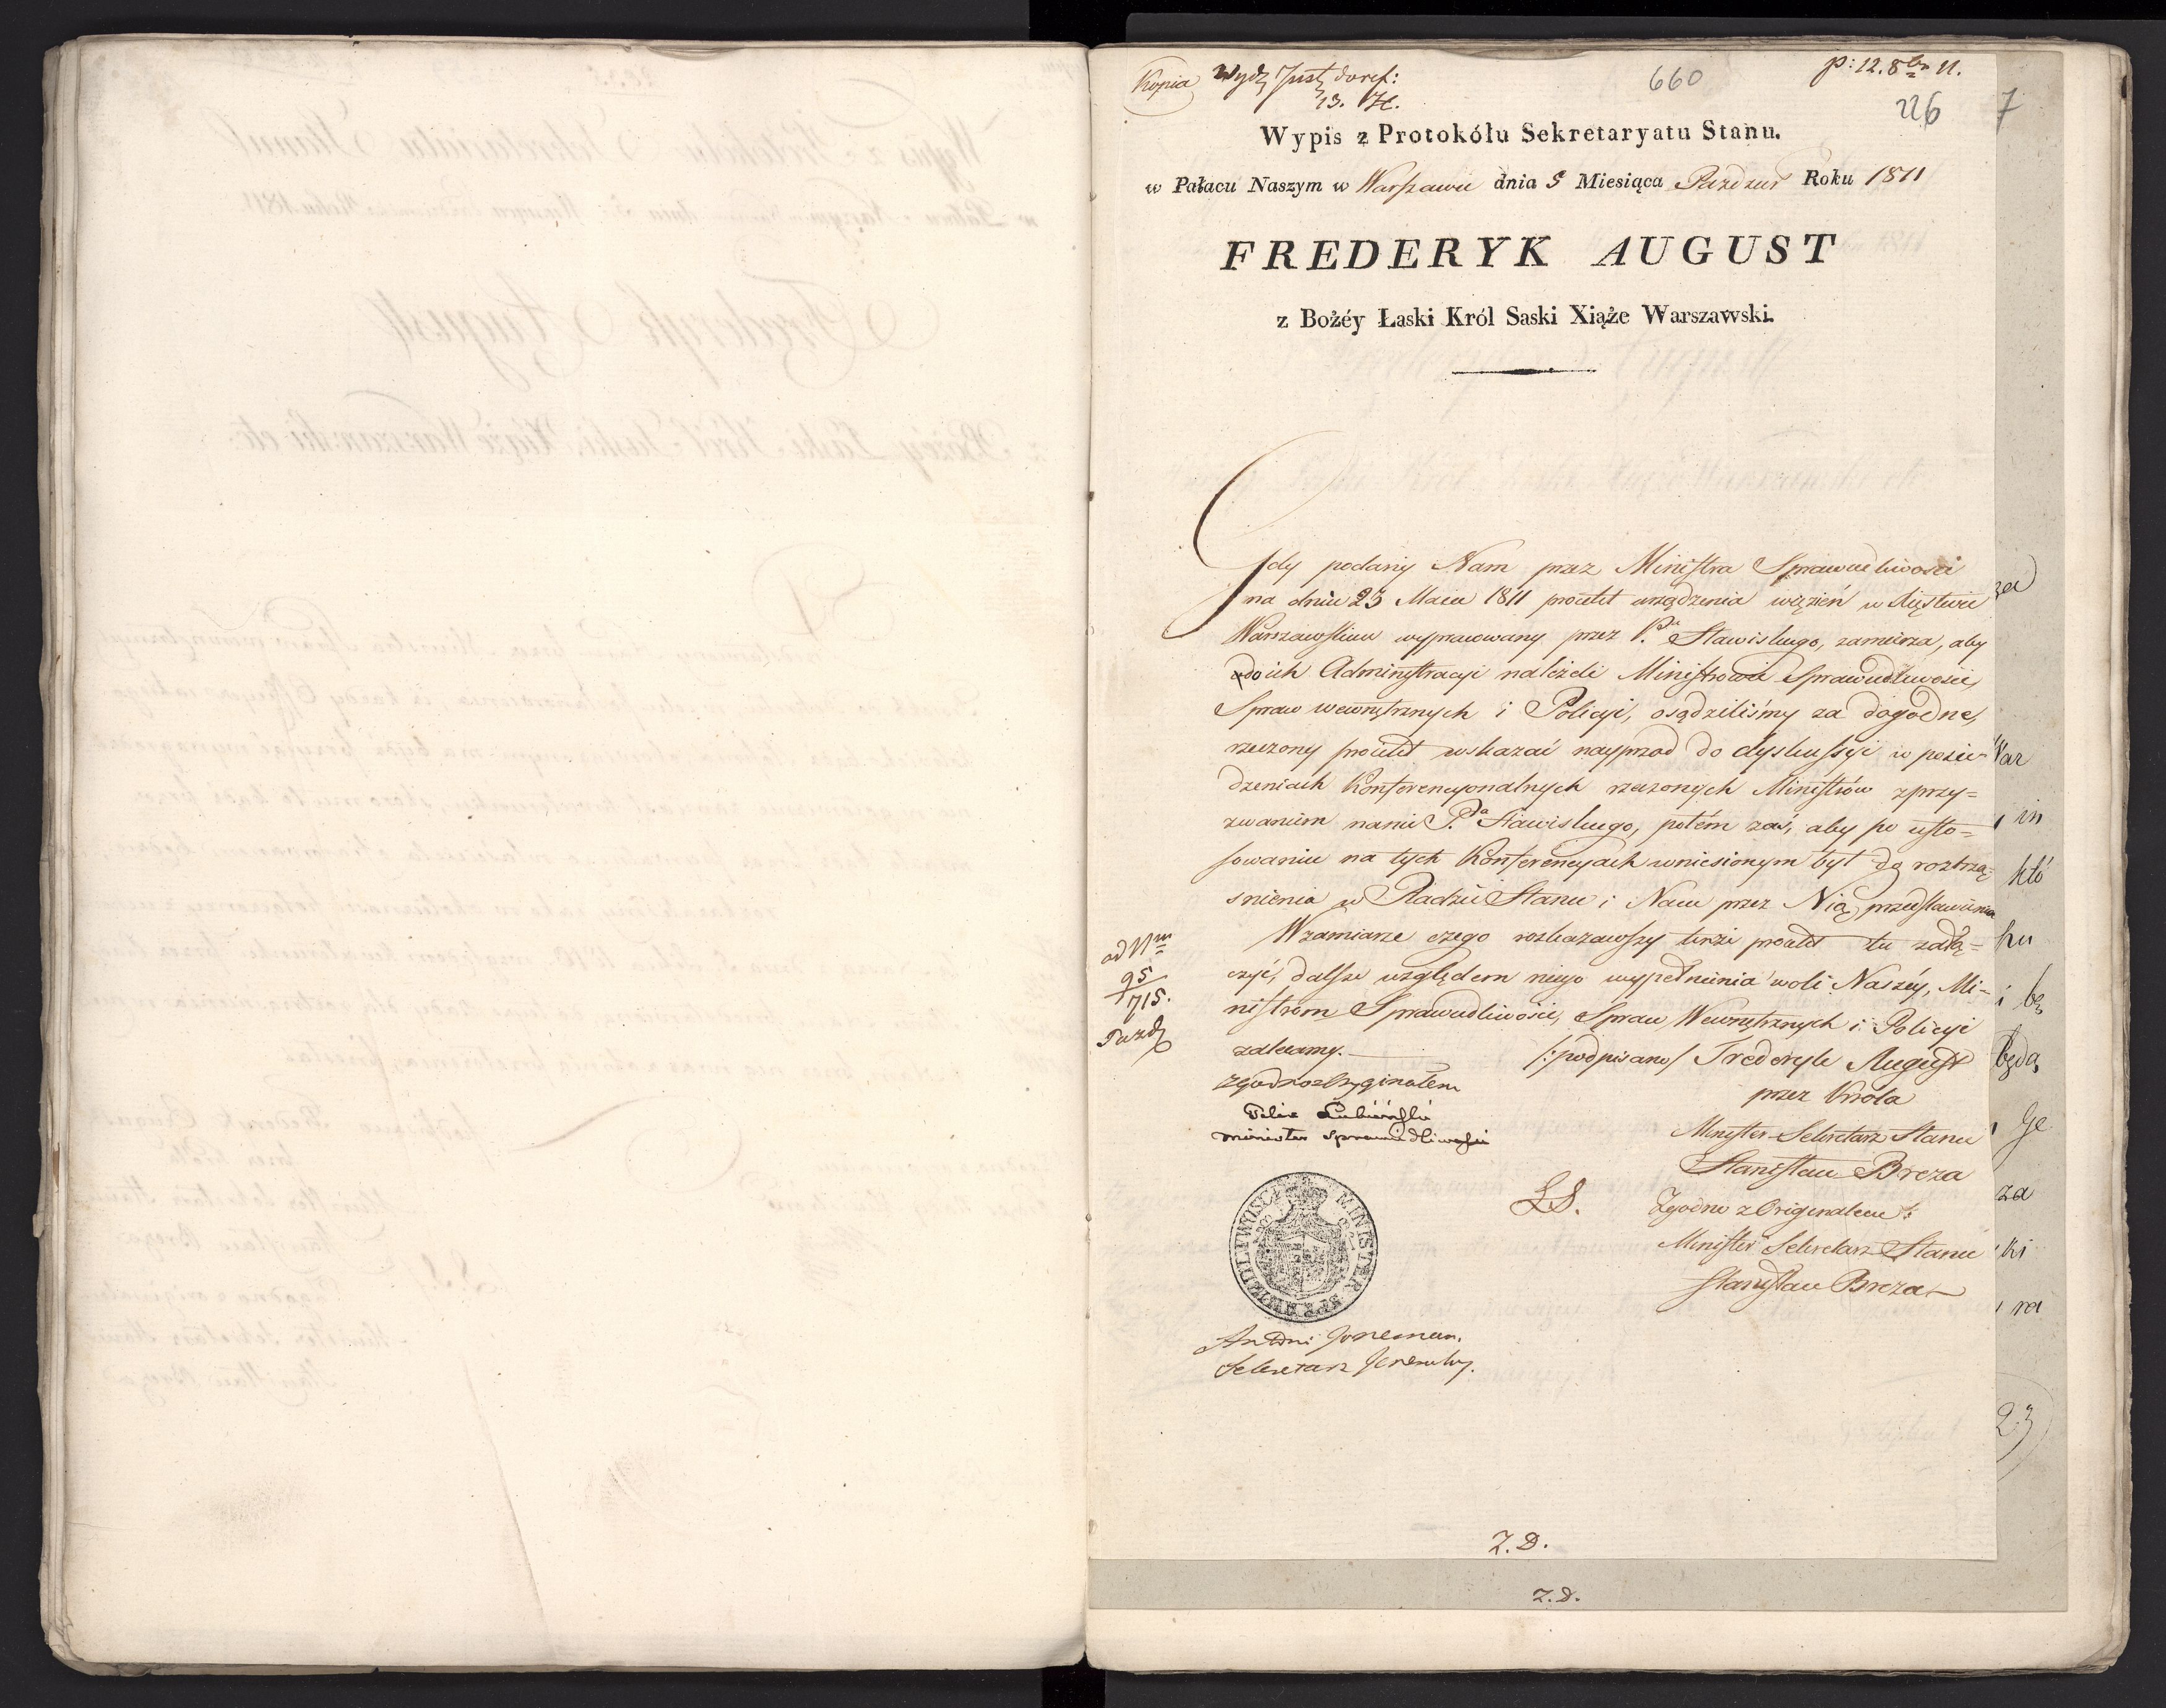 Kopia Wydz Just doref:
13. H.
660
p: 12. 8br 11.
226
7
Wypis z Protokółu Sekretaryatu Stanu.
w Pałacu Naszym w Warszawie dnia 5 Miesiąca Pazdzier Roku 1811
FREDERYK AUGUST
z Bożéy Łaski Król Saski Xiąże Warszawski.
Gdy podany Nam przez Ministra Sprawiedliwości
na dniu 23 Maia 1811 proiekt urządzenia więzień w Xięstwie
Warszawskiem wypracowany przez P. Stawiskiego, zamierza, aby
do ich Administracyi należeli Ministrowie Sprawiedliwości,
Spraw wewnętrznych i Policyi, osądziliśmy za dogodne,
rzeczony proiekt wskazać nayprzod do dyskussyi w posie-
dzeniach Konferencyonalnych rzeczonych Ministrów z przy=
zwaniem na nie P. Stawiskiego, potém zaś, aby po usto=
sowaniu na tych Konferencyach wniesionym był do roztrzą=
snienia w Radzie Stanu i Nam przez Nią przedstawienia
W zamiarze czego rozkazawszy tenże proiekt tu załą=
czyć, dalsze względem niego wypełnienia woli Naszéy, Mi-
nistrom Sprawiedliwości, Spraw Wewnętrznych i Policyi
zalecamy.
od Nru
95
715.
Pazdz
/:podpisano/ Frederyk August
przez Króla
Minister Sekretarz Stanu
Stanisław Breza
L.S. Zgodno z Originałem:
Minister Sekretarz Stanu
Stanisław Breza
Zgodno z Oryginałem
Felix Łubieński
minister sprawiedliwości
MINISTER SPRAWIEDLIWOSCI
Sekretarz Jeneralny.
Z.D.
Z.D.
za
War
i in
któ
ku
i bę
będą
Ge
za
ki
ra
23